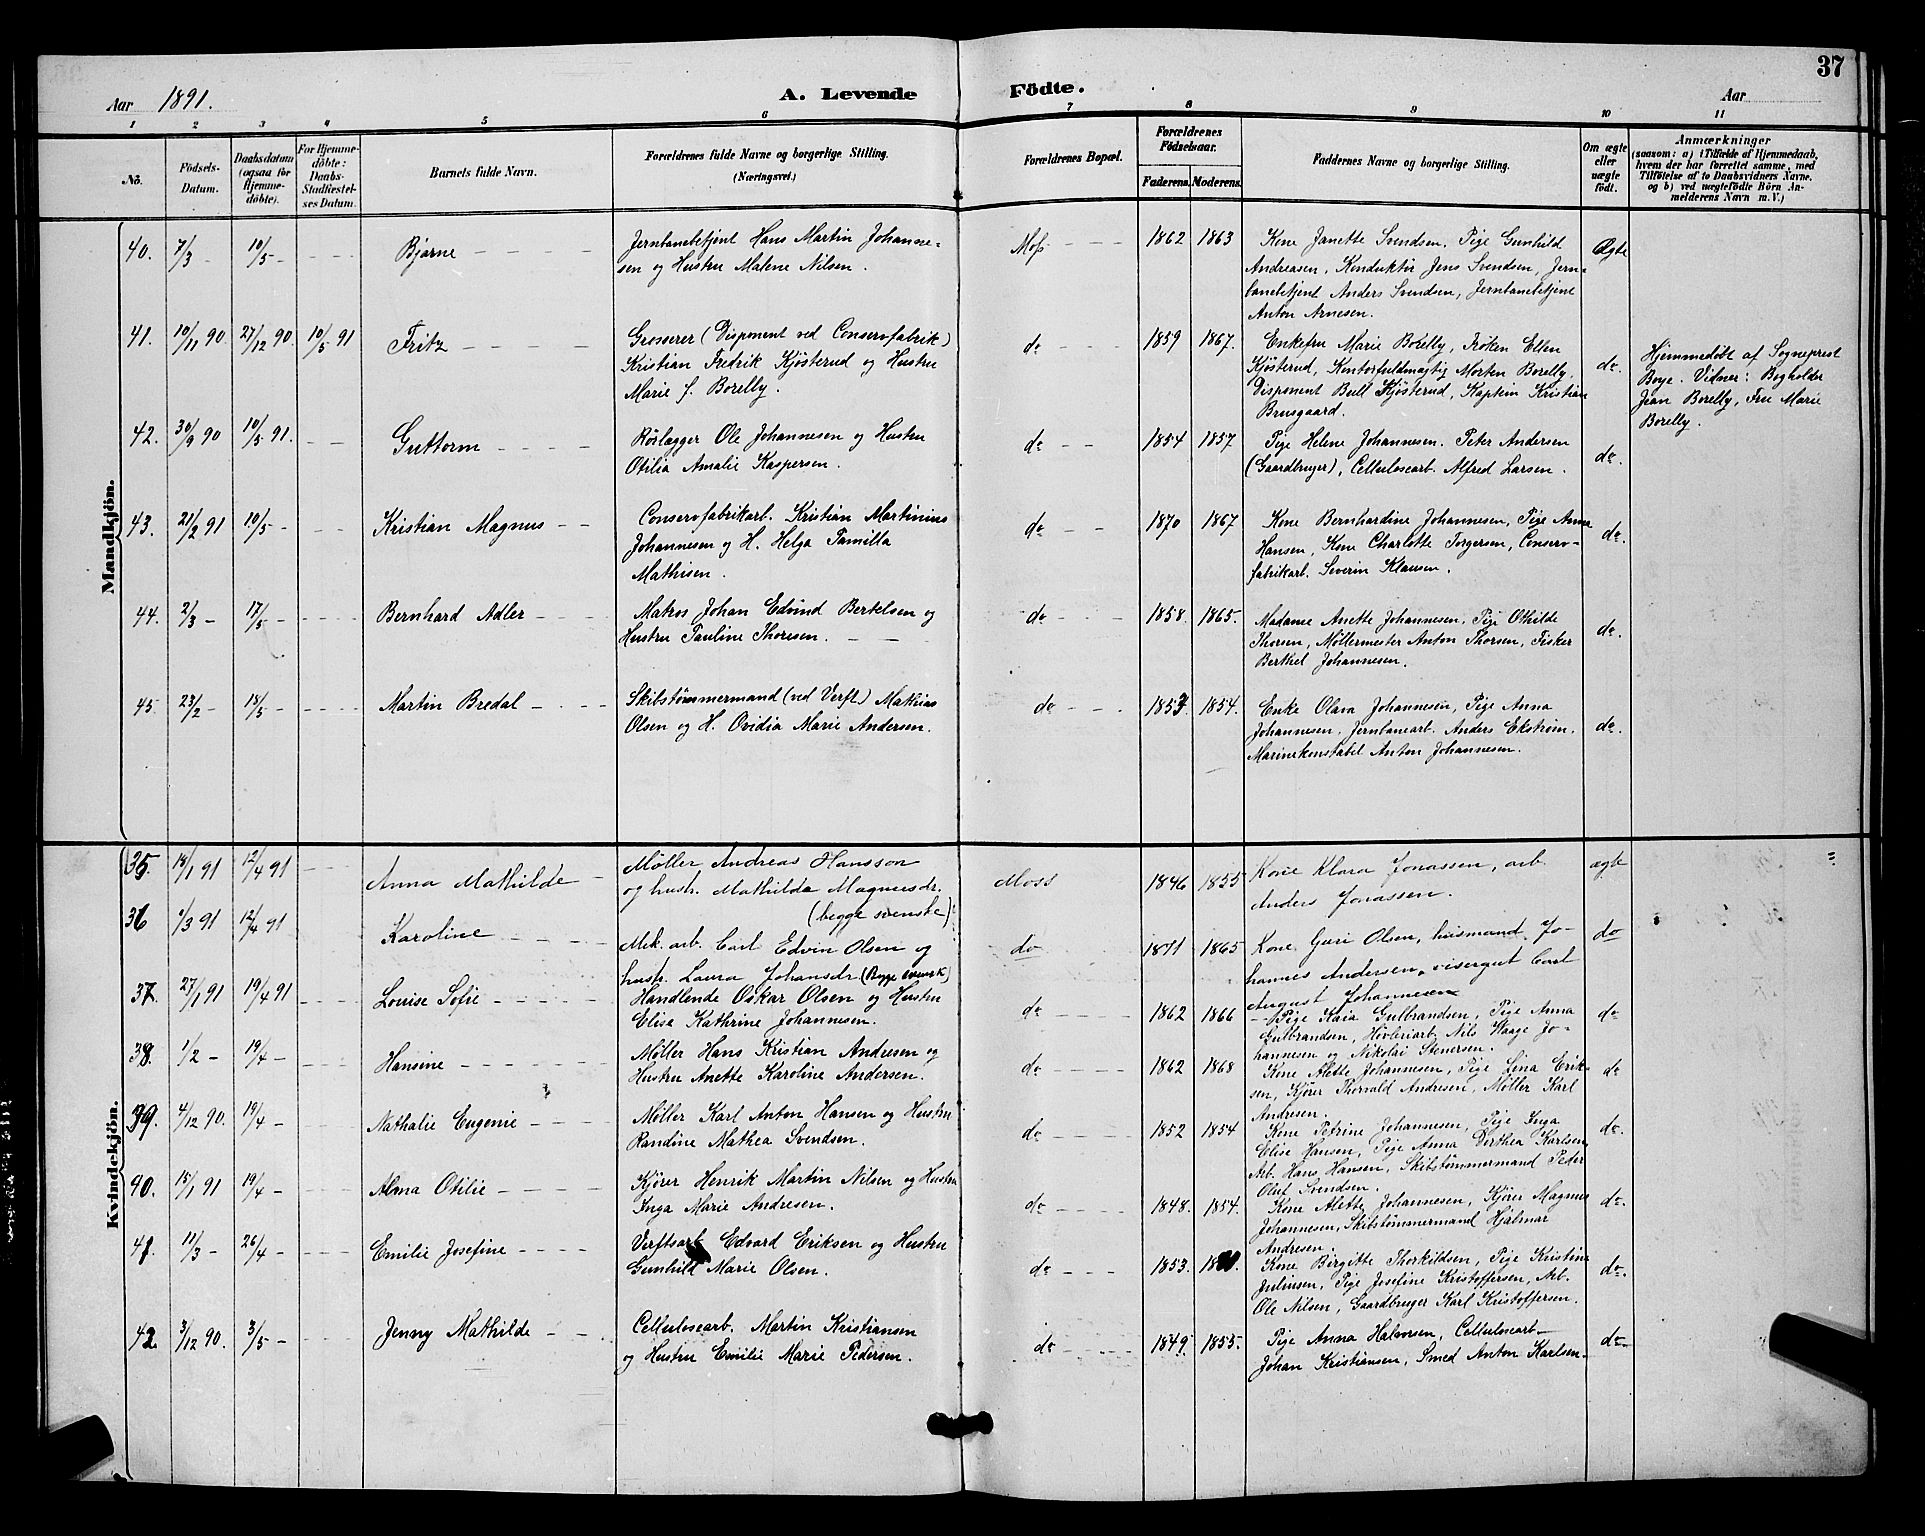 37
Aar 1891.
A. Levende Födte.
Aar
1 2 3 4 5 6 7 8 9 10 11
No.
Födsels-Datum.
Daabsdatum (ogsaa for Hjemme-döbte).
For Hjemme-döbte: Daabs-Stadfæstel-ses Datum.
Barnets fulde Navn.
Forældrenes fulde Navne og borgerlige Stilling. (Næringsvei.)
Forældrenes Bopæl.
Forældrenes Födselsaar.
Faderens. Moderens.
Faddernes Navne og borgerlige Stilling.
Om ægte eller uægte födt.
Anmærkninger
(saasom: a) i Tilfælde af Hjemmedaab, hvem der har forrettet samme, med Tilföielse af to Daabsvidners Navne. og b) ved uægtefödte Börn An-melderens Navn m.V.)
Mandkjön.
40. 7/3 - 10/5 - Bjarne
Jernbanebetjent Hans Martin Johanne-
sen og Hustru Malene Nilsen.
Moss 1862 1863
Kone Janette Svendsen, Pige Gunhild
Andreasen, Konduktør Jens Svendsen, Jern-
banebetjent Anders Svendsen, Jernbanebetjent
Anton Arnesen.
Ægte
41. 10/11 90 27/12 90 10/5 91 Fritz
Grosserer (Disponent ved Conservefabrik)
Kristian Fredrik Kjösterud og Hustru
Marie f. Borelly.
do 1859 1867.
Enkefru Marie Borelly, Frøken Ellen
Kjösterud, Kontorfuldmægtig Morten Borelly,
Disponent Bull Kjösterud, Kaptein Kristian
Brusgaard.
do.
Hjemmedöbt af Sogneprest
Boye. Vidner: Bogholder
Jean Borelly, Fru Marie
Borelly.
42. 30/9 90 10/5 91. Guttorm
Rörlægger Ole Johannesen og Hustru
Otilia Amalie Kaspersen.
do 1854 1857
Pige Helene Johannesen. Peter Andersen
(Gaardbruger), Cellulosearb. Alfred Larsen.
do.
43. 21/2 91 10/5 - Kristian Magnus
Conservefabrikarb. Kristian Martinius
Johannesen og H. Helga Tamilla
Mathisen.
do 1870 1867
Kone Bernhardine Johannesen, Pige Anna
Hansen, Kone Charlotte Torgersen, Conserve-
fabrikarb. Severin Klausen.
do.
44. 2/3 - 17/5 - Bernhard Adler
Matros Johan Edvind Bertelsen og
Hustru Pauline Thoresen.
do 1858. 1865.
Madame Anette Johannesen, Pige Othilde
Thorsen, Møllermester Anton Thorsen, Fisker
Berthel Johannesen.
do.
45. 23/2 - 18/5 - Martin Bredal
Skibstømmermand (ved Verft.) Mathias
Olsen og H. Ovidia Marie Andersen.
do 1857. 1854.
Enke Olava Johannesen, Pige Anna
Johannesen, Jernbanearb. Anders Ekstrøm,
Marinekonstabel Anton Johannesen.
do.
Kvindekjön.
35. 18/1 91 12/4 91 Anna Mathilde
Møller Andreas Hansson
og hustr. Mathilda Magnusdr.
(begge svenske)
Moss 1846 1855
Kone Klara Jonassen, arb.
Anders Jonassen.
ægte
36 1/3 91 12/4 91 Karoline
Mek. arb. Carl Edvin Olsen og
hustr. Laura Johansdr. (Begge svensk)
do 1871 1865
Kone Guri Olsen, husmand Jo-
hannes Andersen, visergut Carl
August Johannesen
do
37. 27/1 91 19/4 91 Louise Sofie
Handlende Oskar Olsen og Hustru
Elise Kathrine Johannesen.
do 1862 1866
Pige Kaia Gulbrandsen, Pige Anna
Gulbrandsen, Høvleriarb. Nils Waage Jo-
hannesen og Nikolai Stenersen.
do
38. 1/2 - 19/4 - Hansine
Møller Hans Kristian Andresen og
Hustru Anette Karoline Andersen.
do 1862 1868
Kone Alette Johannesen, Pige Lina Erik-
sen, Kjører Thorvald Andresen, Møller Karl
Andresen.
do
39. 4/12 90. 19/4 - Nathalie Eugenie
Møller Karl Anton Hansen og Hustru
Randine Mathea Svendsen.
do 1852 1854
Kone Petrine Johannesen, Pige Inga
Elise Hansen, Pige Anna Dorthea Karlsen,
Arb. Hans Hansen, Skibstømmermand Peder
Oluf Svendsen.
do.
40. 15/1 91 19/4 - Alma Otilie
Kjører Henrik Martin Nilsen og Hustru
Inga Marie Andresen.
do 1848. 1854.
Kone Alette Johannesen, Kjører Magnus
Johannesen, Skibstømmermand Hjalmar
Andresen.
do.
41. 11/3 - 26/4 - Emilie Josefine
Verftsarb. Edvard Eriksen og Hustru
Gunhild Marie Olsen.
do 1853.
Kone Birgitte Thorkildsen, Pige Kristine
Juliusen, Pige Josefine Kristoffersen, Arb.
Ole Nilsen, Gaardbruger Karl Kristoffersen.
do.
42. 3/12 90. 3/5 - Jenny Mathilde
Cellulosearb. Martin Kristiansen
og Hustru Emilie Marie Pedersen.
do 1849. 1855.
Pige Anna Halvorsen, Cellulosearb.
Johan Kristiansen, Smed Anton Karlsen
do